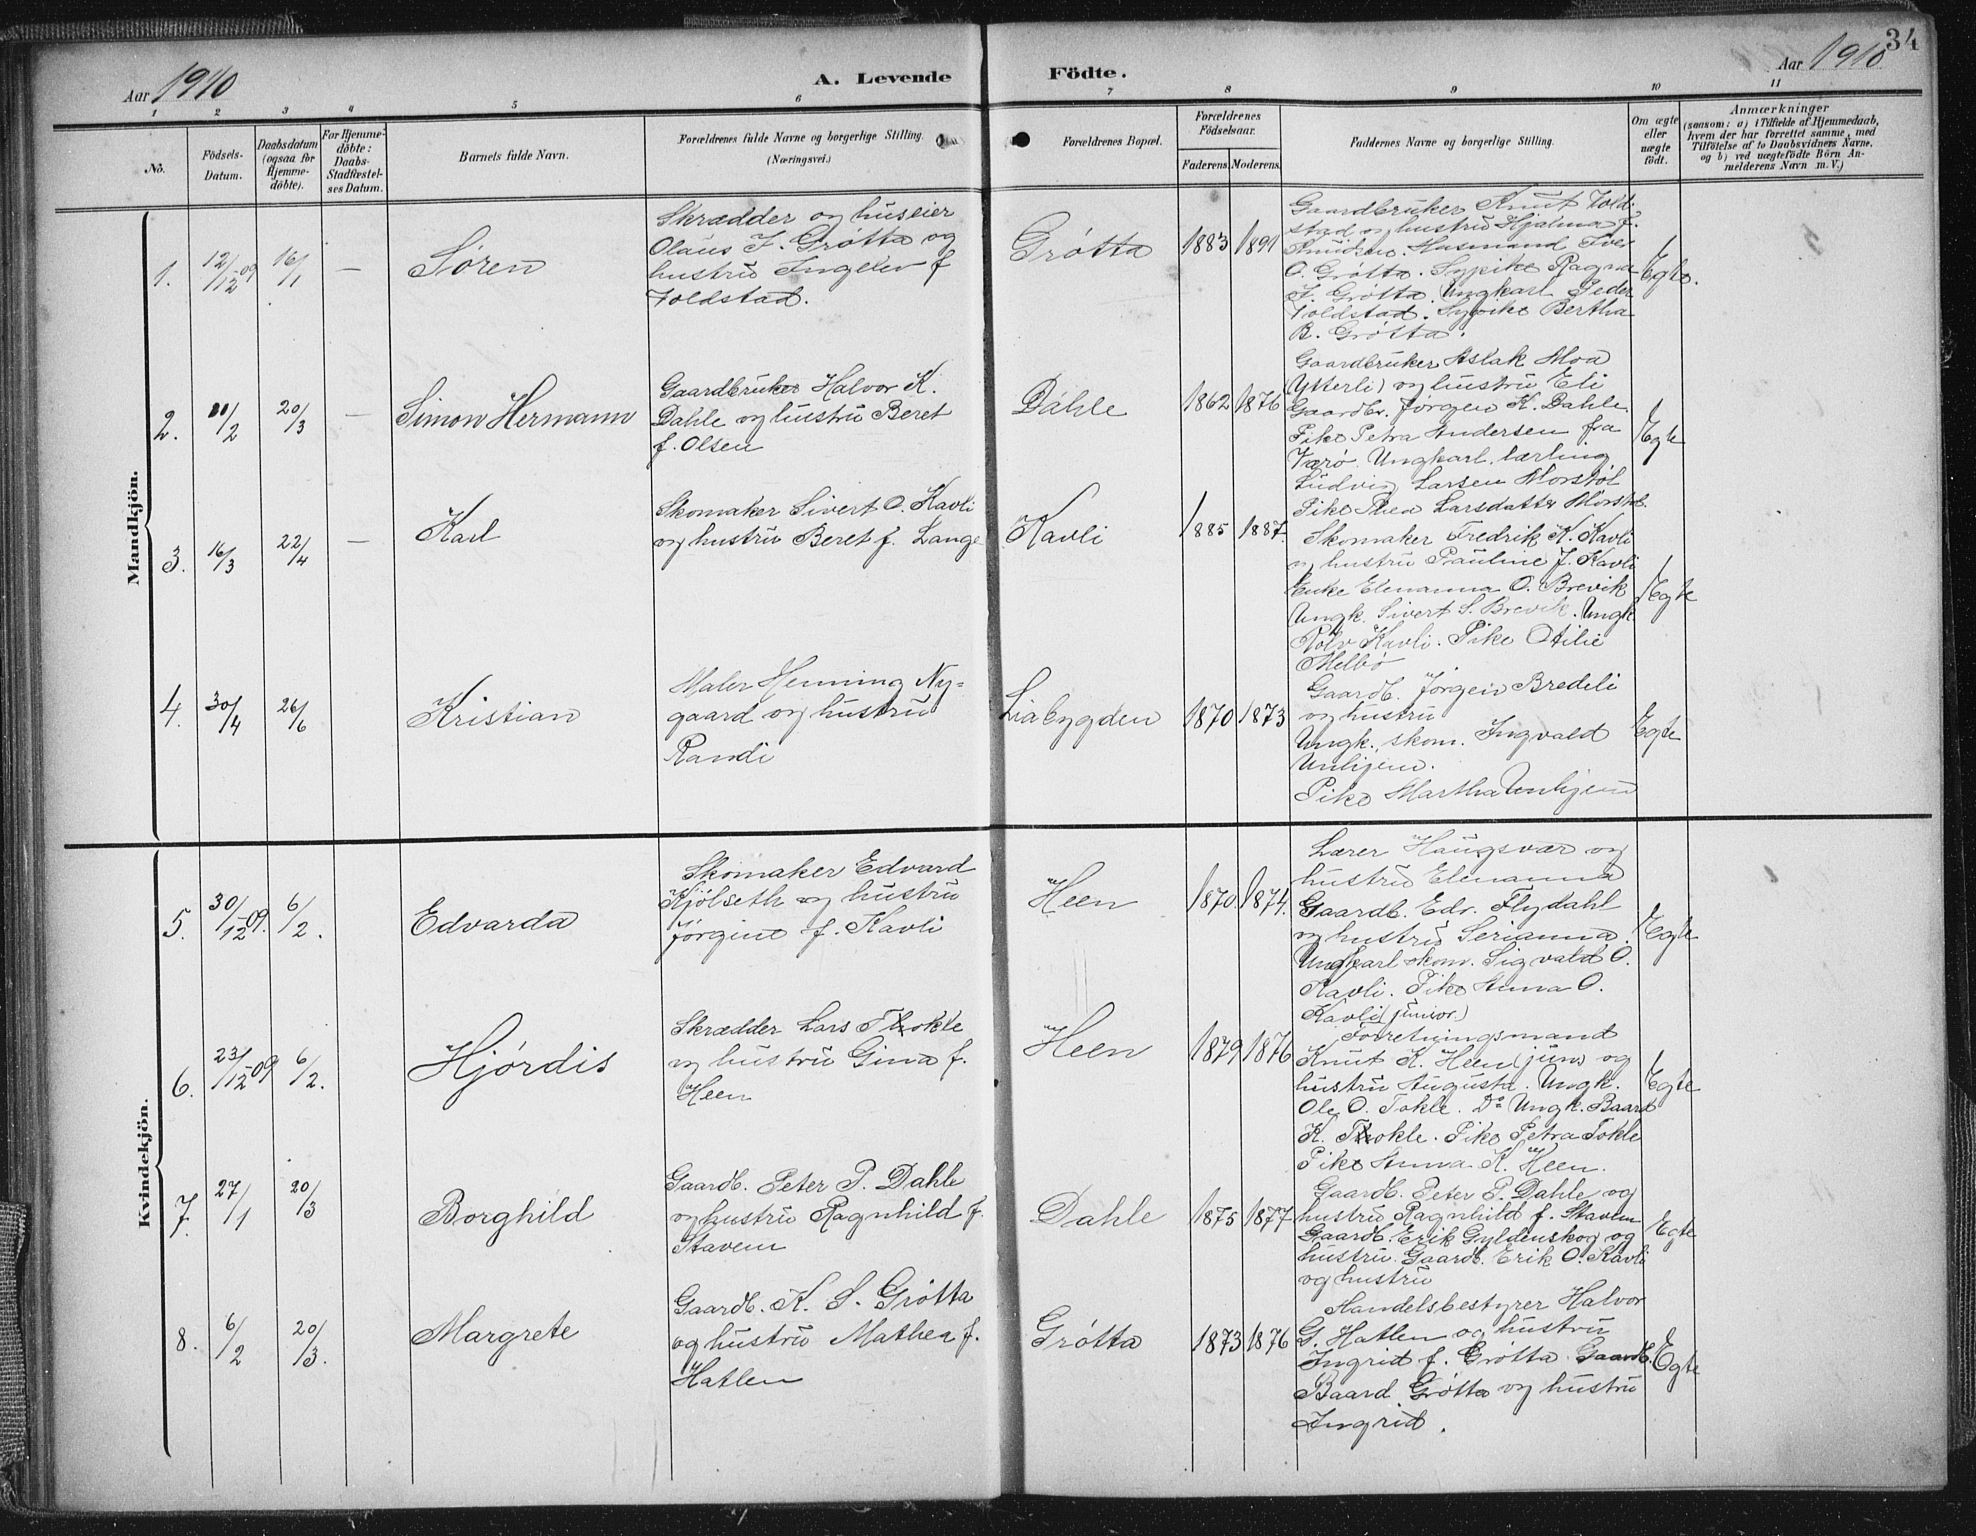 34
Aar 1910
A. Levende Födte.
Aar 1910
1 2 3 4 5 6 7 8 9 10 11
No.
Födsels-
Datum.
Daabsdatum
(ogsaa for
Hjemme-
döbte).
For Hjemme-
döbte:
Daabs-
Stadfæstel-
ses Datum.
Barnets fulde Navn.
Forældrenes fulde Navne og borgerlige Stilling.
(Næringsvei.)
Forældrenes Bopæl.
Forældrenes
Födselsaar.
Faderens. Moderens.
Faddernes Navne og borgerlige Stilling.
Om ægte
eller
uægte
födt.
Anmærkninger
(saasom: a) i Tilfælde af Hjemmedaab,
hvem der har forrettet samme, med
Tilföielse af to Daabsvidners Navne,
og b) ved uægtefödte Börn An-
melderens Navn m. V.)
Mandkjön.
1.
12/12 09
16/1
—
Søren
Skrædder og huseier
Olaus J. Grøtta og
hustru Ingelev f.
Voldstad.
Grøtta
1883
1891
Gaardbruker Knut Vold-
stad og hustru Hjalma f.
Knudsen. Husmand Iver
O. Grøtta. Sypike Ragna
J. Grøtta. Ungkarl Peder
Voldstad. Sypike Bertha
B. Grøtta.
Egte.
2.
11/2
20/3
—
Simon Hermann
Gaardbruker Halvor K.
Dahle og hustru Beret
f. Olsen
Dahle
1862
1876
Gaardbruker Aslak Moa
(Ytterli) og hustru Eli
Gaardbr. Jørgen K. Dahle.
Pike Petra Andersen fra
Værø. Ungkarl, lærling
Ludvig Larsen Morstøl
Pike Thea Larsdatter Morstøl.
Egte
3.
16/3
22/4
—
Karl
Skomaker Sivert O. Kavli
og hustru Beret f. Lange
Kavli
1885
1887.
Skomaker Fredrik K. Kavli
og hustru Pauline J. Kavli
Enke Elenanna O. Brevik
Ungk. Sivert S. Brevik. Ungk.
Rolv Kavli. Pike Otilie
Melbø
Egte
4.
30/4
26/6
Kristian
Maler Henning Ny-
gaard og hustru
Randi
Liabygden
1870
1873
Gaardb. Jørgen Bredeli
og hustru
Ungk., skom. Ingvald
Unhjem.
Pike Martha Unhjem
Egte
Kvindekjön.
5.
30/12 09.
6/2.
Edvarda
Skomaker Edvard
Kjölseth og hustru
Jørgine f. Kavli
Heen
1870
1874.
Lærer Haugsvær og
hustru Elenanna
Gaardb. Edv. Flydahl
og hustru Serianna.
Ungkarl skom. Sigvald O.
Kavli. Pike Anna O.
Kavli (junior.)
Egte
6.
23/12 09
6/2.
Hjørdis
Skrædder Lars Thokle
og hustru Gina f.
Heen
Heen
1879
1876
Forretningsmand
Knut K. Heen (jun) og
hustru Augusta. Ungk.
Ole O. Tokle. Do Ungk. Baard
K. Thokle. Pike Petra Tokle
Pike Anna K. Heen.
Egte
7.
27/1
20/3
Borghild
Gaardb. Peter P. Dahle
og hustru Ragnhild f.
Stavem
Dahle
1875
1877
Gaardb. Peter P. Dahle og
hustru Ragnhild f. Stavem
Gaardb. Erik Gyldenskog og
hustru. Gaardb. Erik O. Kavli
og hustru
Egte
8.
6/2
20/3.
Margrete
Gaardb. K. S. Grøtta
og hustru Mathea f.
Hatlen
Grøtta
1873
1876
Handelsbestyrer Halvor
G. Hatlen og hustru
Ingrid f. Grøtta Gaardb.
Baard Grøtta og hustru
Ingrid.
Egte